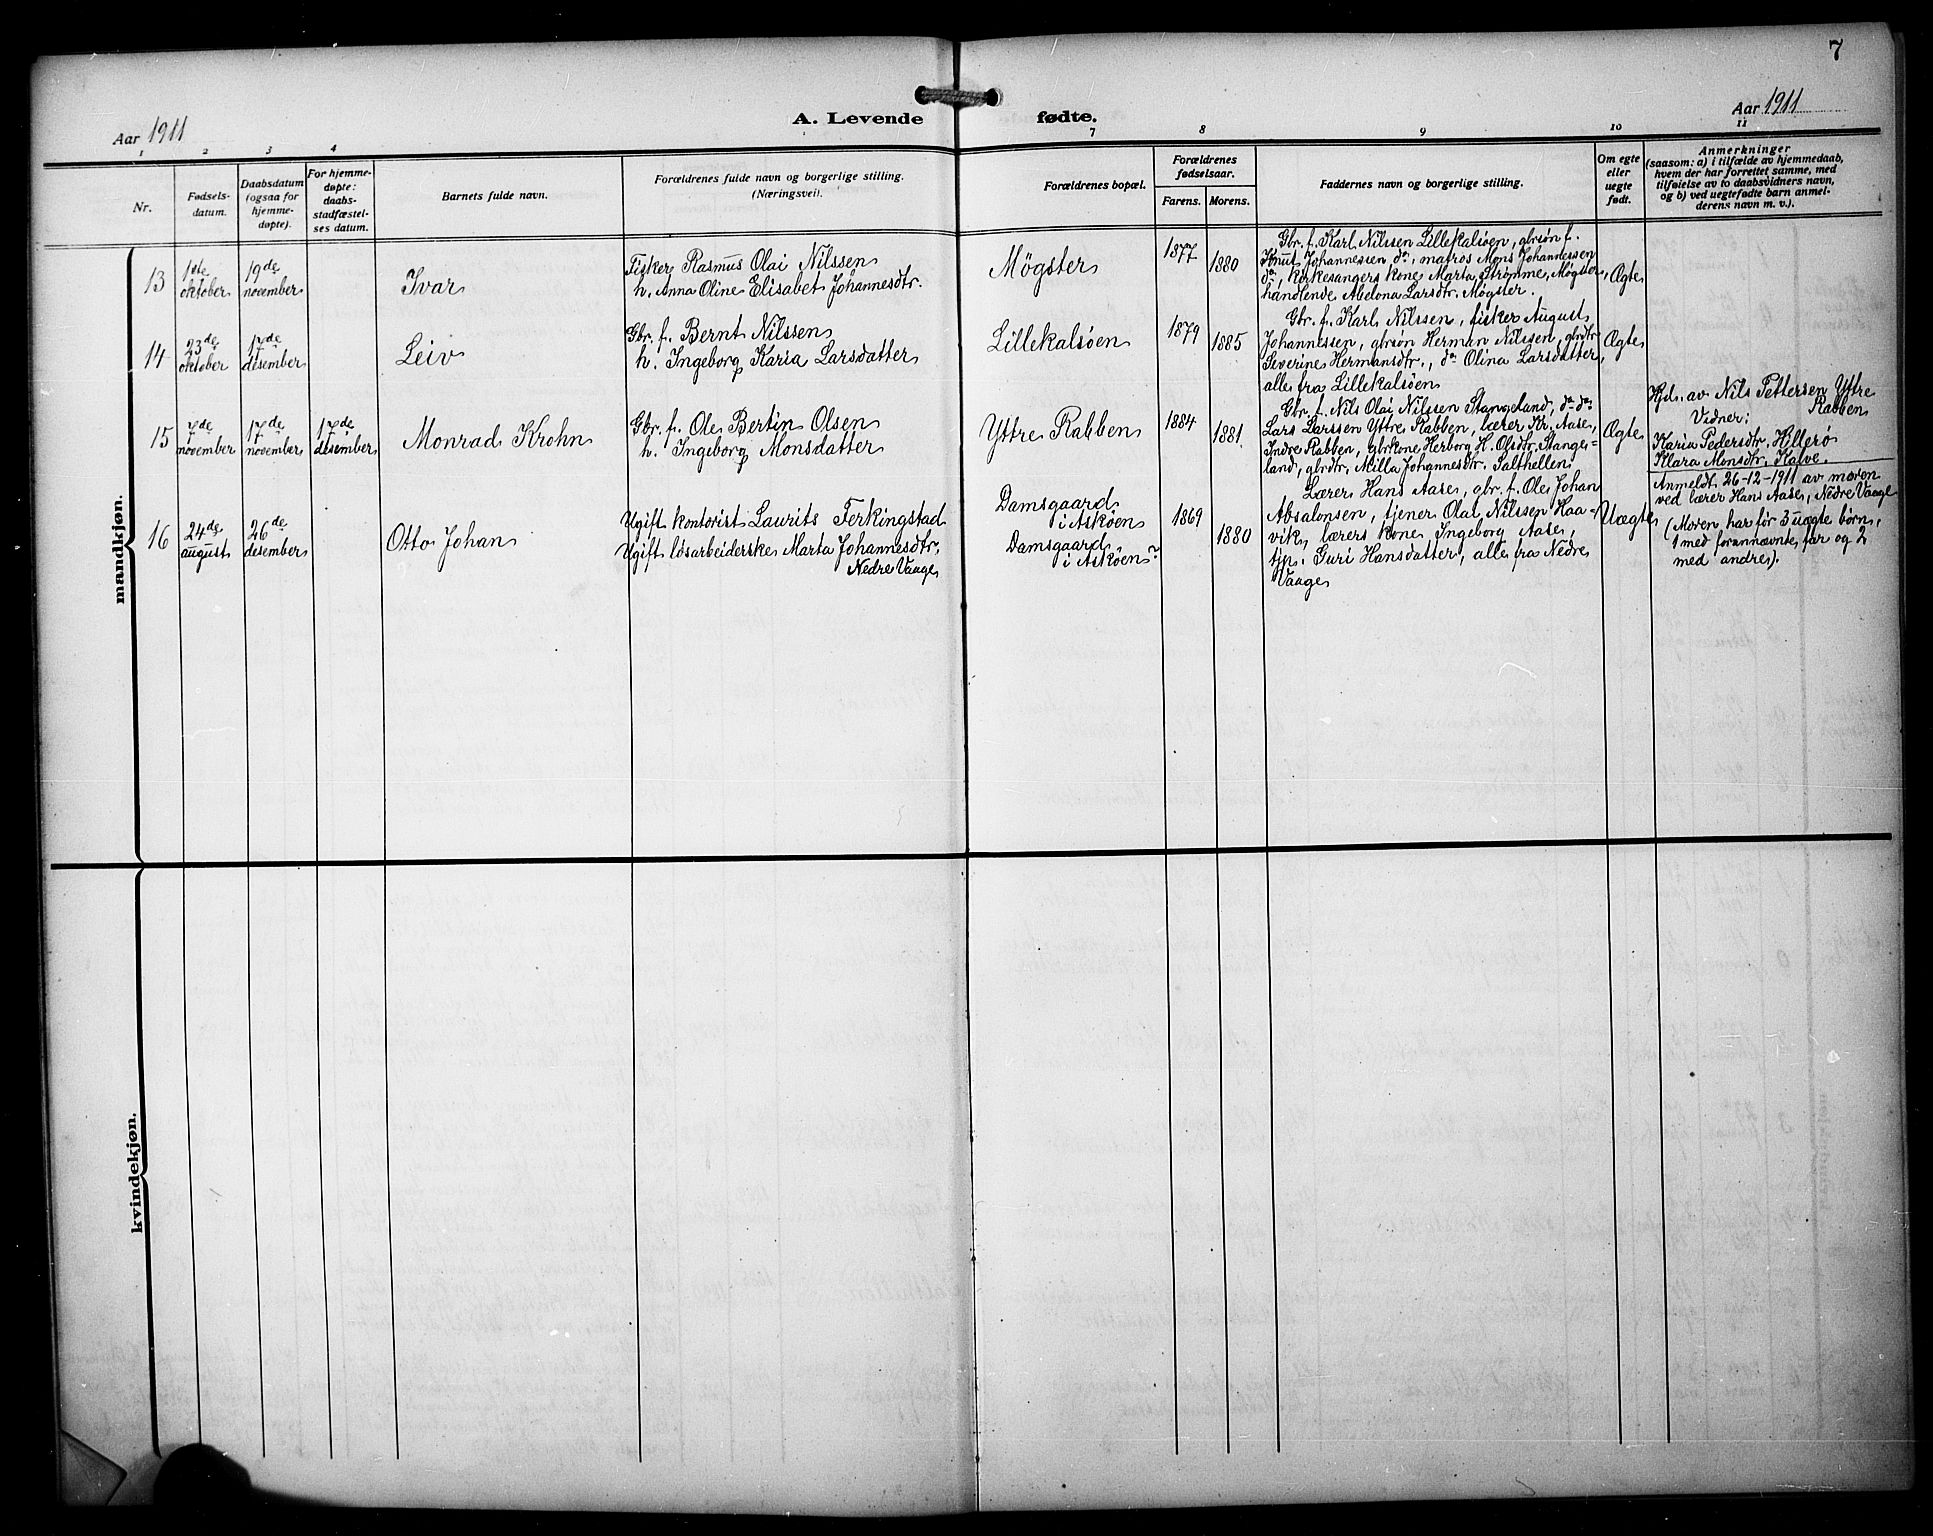 7
Aar 1911
A. Levende fødte.
Aar 1911
1 2 3 4 7 8 9 10 11
Nr.
Fødsels-
datum.
Daabsdatum
(ogsaa for
hjemme-
døpte).
For hjemme-
døpte:
daabs-
stadfæstel-
ses datum.
Barnets fulde navn.
Forældrenes fulde navn og borgerlige stilling.
(Næringsvei).
Forældrenes bopæl.
Forældrenes
fødselsaar.
Farens. Morens.
Faddernes navn og borgerlige stilling.
Om egte
eller
uegte
født.
Anmerkninger
(saasom: a) i tilfælde av hjemmedaab,
hvem der har forrettet samme, med
tilføielse av to daabsvidners navn,
og b) ved uegtefødte barn anmel-
derens navn m. v.).
mandkjøn.
13
1ste
oktober
19de
november
Ivar
Fisker Rasmus Olai Nilssen
h. Anna Oline Elisabet Johannesdtr.
Møgster
1877
1880
Gbr. f. Karl Nilssen Lillekalsøen, gbrsøn f.
Knut Johannessen do, matros Mons Johannessen
do, kirkesangers kone Marta Strømme, Møgster,
handlende Abelona Larsdtr. Møgster.
Ægte
14
23de
oktober
17de
desember
Leiv
Gbr. f. Bernt Nilssen
h. Ingeborg Karia Larsdatter
Lillekalsøen
1879
1885
Gbr. f. Karl Nilssen, fisker August
Johannessen, gbrsøn Herman Nilssen, gbrdtr
Severine Hermansdtr., do Olina Larsdatter,
alle fra Lillekalsøen
Ægte
15
7de
november
17de
november
17de
desember
Monrad Krohn
Gbr. f. Ole Bertin Olsen
h. Ingeborg Monsdatter
Yttre Rabben
1884
1881.
Gbr. f. Nils Olai Nilssen Stangeland, do do
Lars Larssen Yttre Rabben, lærer Kr. Aase,
Indre Rabben, gbrkone Herborg H. Olsdtr. Stange-
land, gbrdtr. Milla Johannesdtr. Salthellen
Ægte
Hjd. av Nils Pettersen Yttre
Rabben
Vidner:
Karia Pedersdtr. Hillerø
Klara Monsdtr. Kalve.
16
24de
august
26de
desember
Otto Johan
Ugift kontorist Laurits Ferkingstad
Ugift løsarbeiderske Marta Johannesdtr,
Nedre Vaage
Damsgaard
i Askøen
Damsgaard
i Askøen?
1869
1880
Lærer Hans Aase, gbr. f. Ole Johan
Absalonsen, tjener Olai Nilssen Haa-
vik, lærers kone, Ingeborg Aase,
tjp. Guri Hansdatter, alle fra Nedre
Vaage
Uægte
Anmeldt 26-12-1911 av moren
ved lærer Hans Aase, Nedre Vaage
(Moren har før 3 uægte børn,
1 med forannævnte far og 2
med andre).
kvindekjøn.